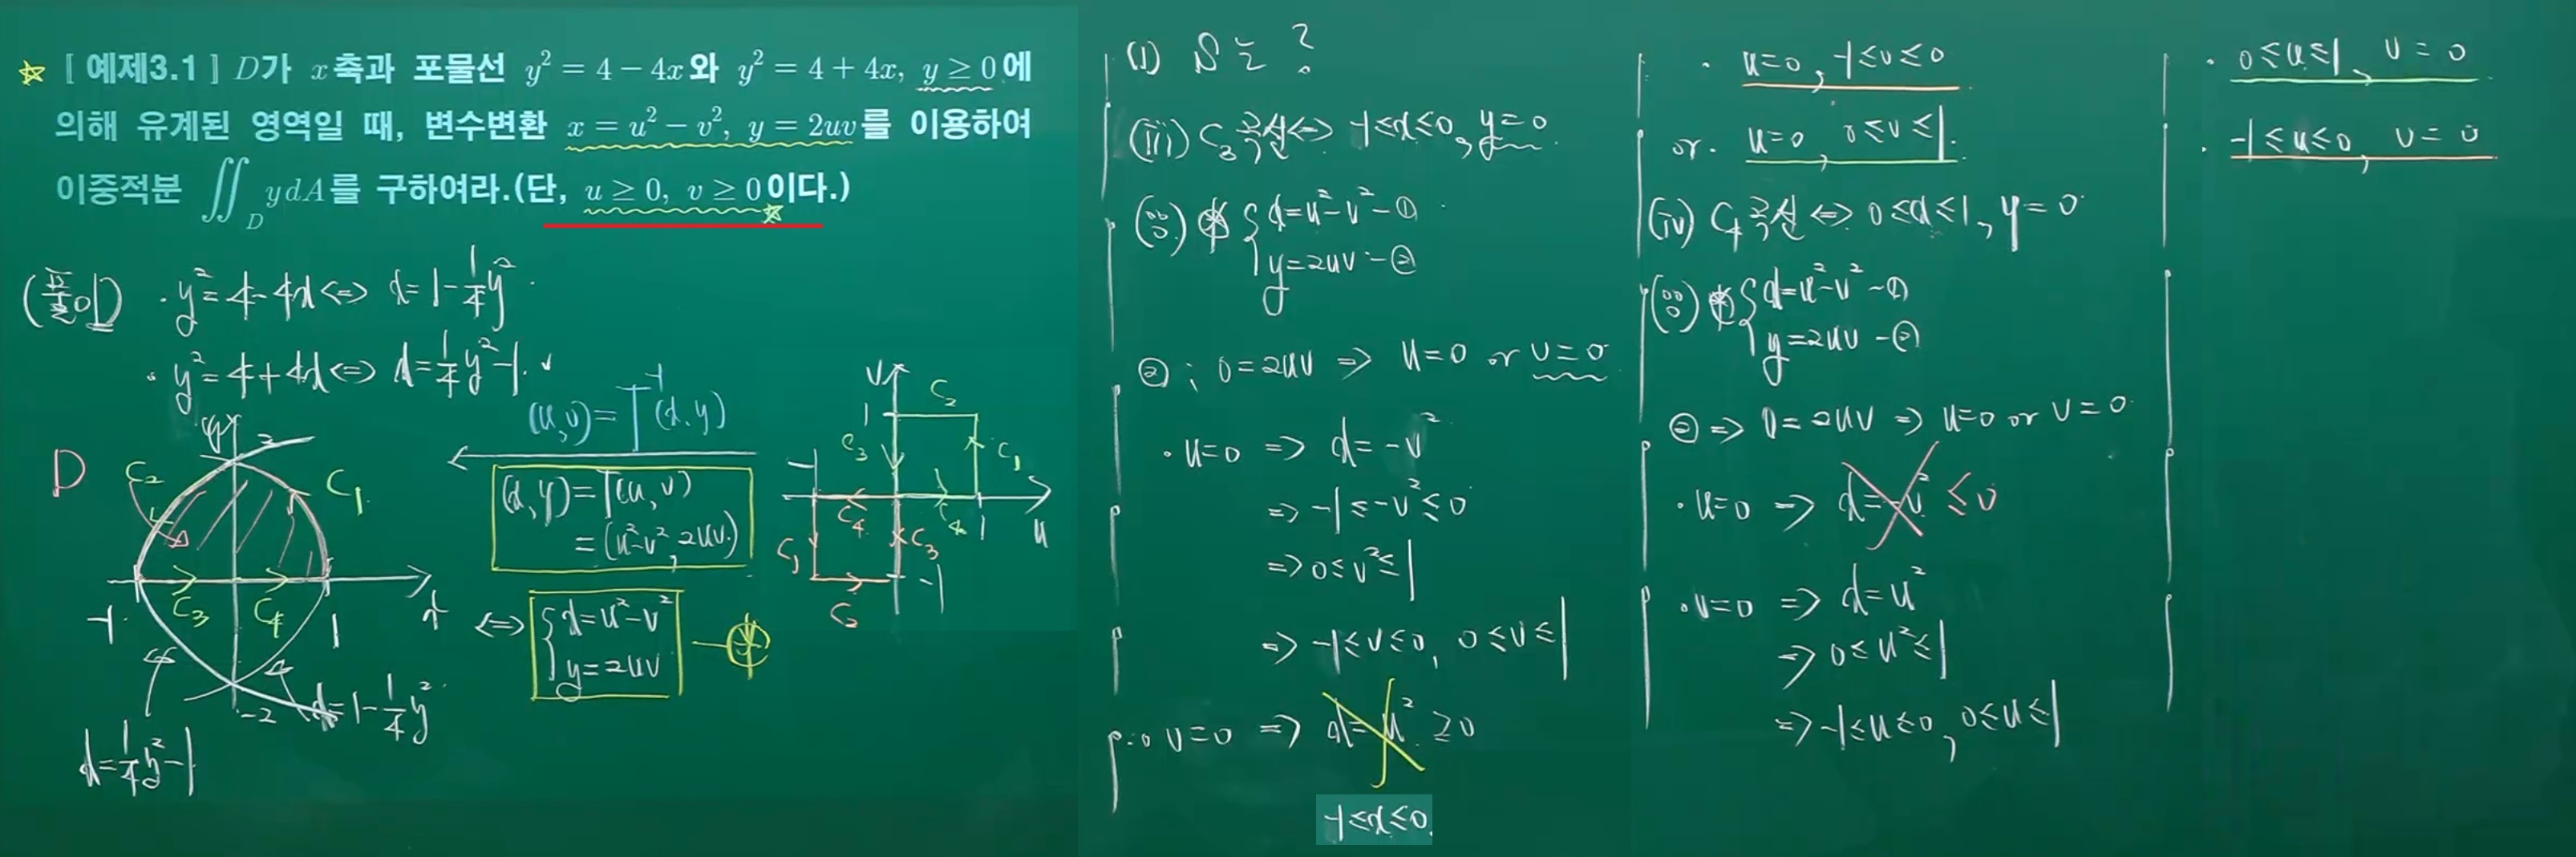 ☆ [ 예제3.1 ] D가 x축과 포물선 y² = 4 − 4x와 y² = 4 + 4x, y ≥ 0에
의해 유계된 영역일 때, 변수변환 x = u² − v², y = 2uv를 이용하여
이중적분 ∬_D ydA를 구하여라.(단, u ≥ 0, v ≥ 0이다.)
(풀이) · y² = 4-4x <=> x = 1-1/4 y²
· y² = 4+4x <=> x = 1/4 y² -1
(u,v) = T⁻¹(x,y)
(x,y) = T(u,v)
= (u²-v², 2uv)
<=> { x = u²-v²
y = 2uv
D
y
2
C₂
C₁
C₃
C₄
-1
1
x
-2
x = 1-1/4 y²
x = 1/4 y² -1
v
1
C₂
C₃
C₁
-1
C₄
C₄
1
u
C₁
C₃
-1
C₂
(1) S는?
(iii) C₃곡선 <=> -1≤x≤0, y=0
(∵) ⊛ { x = u²-v² -①
y = 2uv -②
② ; 0=2uv => u=0 or v=0
· u=0 => x = -v²
=> -1≤-v²≤0
=> 0≤v²≤1
=> -1≤v≤0, 0≤v≤1
· v=0 => x = u² ≥0
-1≤x≤0.
· u=0, -1≤v≤0
or · u=0, 0≤v≤1.
(iv) C₄곡선 <=> 0≤x≤1, y=0
(∵) ⊛ { x = u²-v² -①
y = 2uv -②
② => 0=2uv => u=0 or v=0
· u=0 => x = -v² ≤0
· v=0 => x = u²
=> 0≤u²≤1
=> -1≤u≤0, 0≤u≤1
· 0≤u≤1, v=0
· -1≤u≤0, v=0